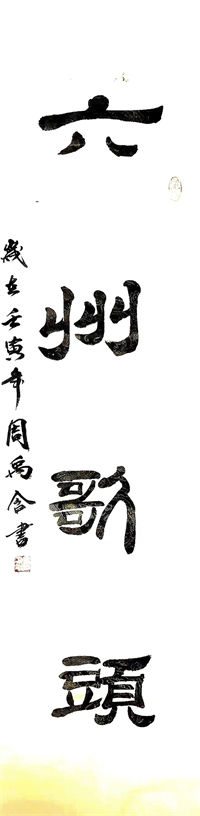 六州歌頭
歲在壬寅年周禹含書